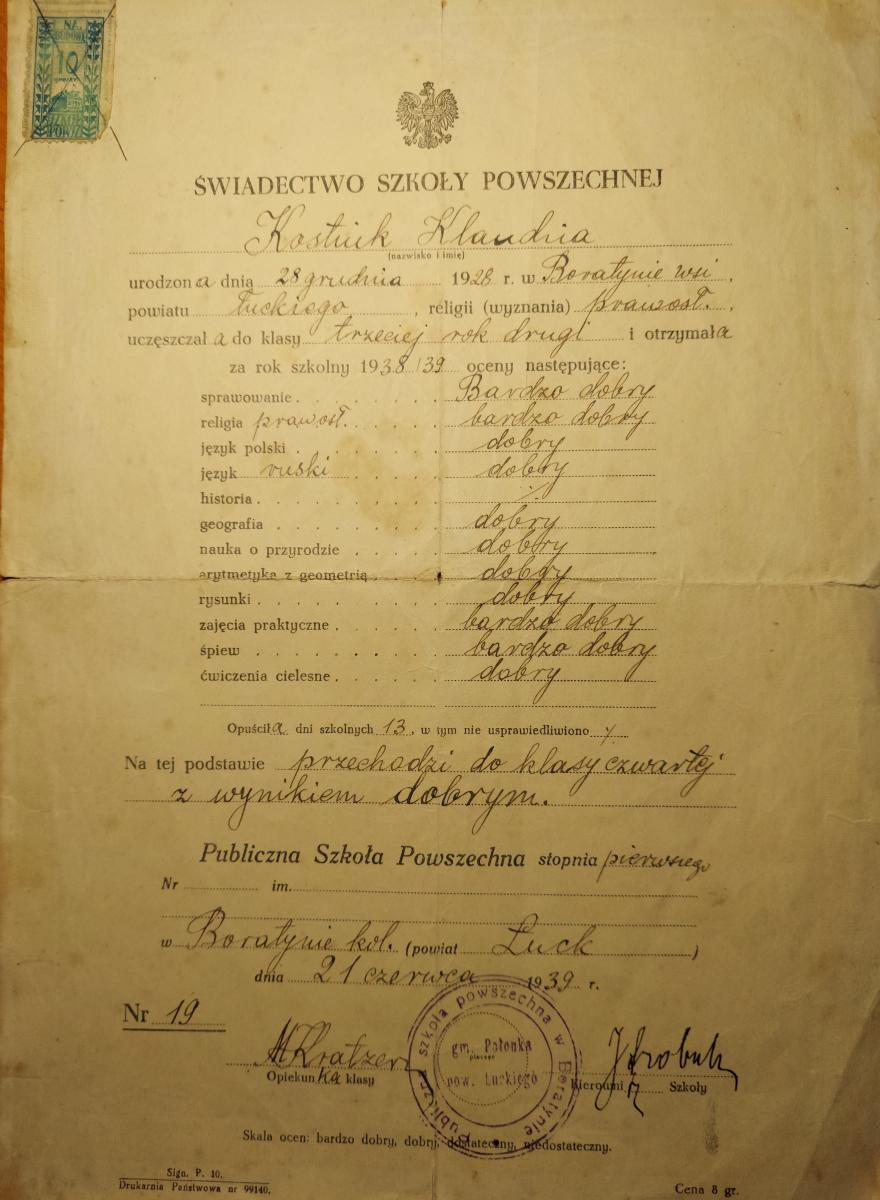 NA
BUDOWĘ
10
GROSZY
SZKÓŁ
POWSZ
ŚWIADECTWO SZKOŁY POWSZECHNEJ
Kostiuk Klaudia
(nazwisko i imię)
urodzona dnia 28 grudnia 1928 r. w Boratynie wsi,
powiatu łuckiego, religii (wyznania) prawosł.,
uczęszczała do klasy trzeciej rok drugi i otrzymała
za rok szkolny 1938/39 oceny następujące:
sprawowanie . . . . . . Bardzo dobry
religia prawosł. . . . . . bardzo dobry
język polski . . . . . . dobry
język ruski . . . . dobry
historia . . . . . . . ·/·
geografia . . . . . . . dobry
nauka o przyrodzie . . . . dobry
arytmetyka z geometrią . . . dobry
rysunki . . . . . . . dobry
zajęcia praktyczne . . . . . bardzo dobry
śpiew . . . . . . . . bardzo dobry
ćwiczenia cielesne . . . . . dobry
Opuściła dni szkolnych 13, w tym nie usprawiedliwiono
Na tej podstawie przechodzi do klasy czwartej
z wynikiem dobrym.
Publiczna Szkoła Powszechna stopnia pierwszego
Nr im.
w Boratynie kol. (powiat Łuck)
dnia 21 czerwca 1939 r.
Nr 19
Publiczna szkoła powszechna w Boratynie
gm. Połonka
pow. Łuckiego
M Kratzer
Opiekunka klasy
Kierowni Szkoły
Skala ocen: bardzo dobry, dobry, dostateczny, niedostateczny.
Sign. P. 10.
Drukarnia Państwowa nr 99140.
Cena 8 gr.